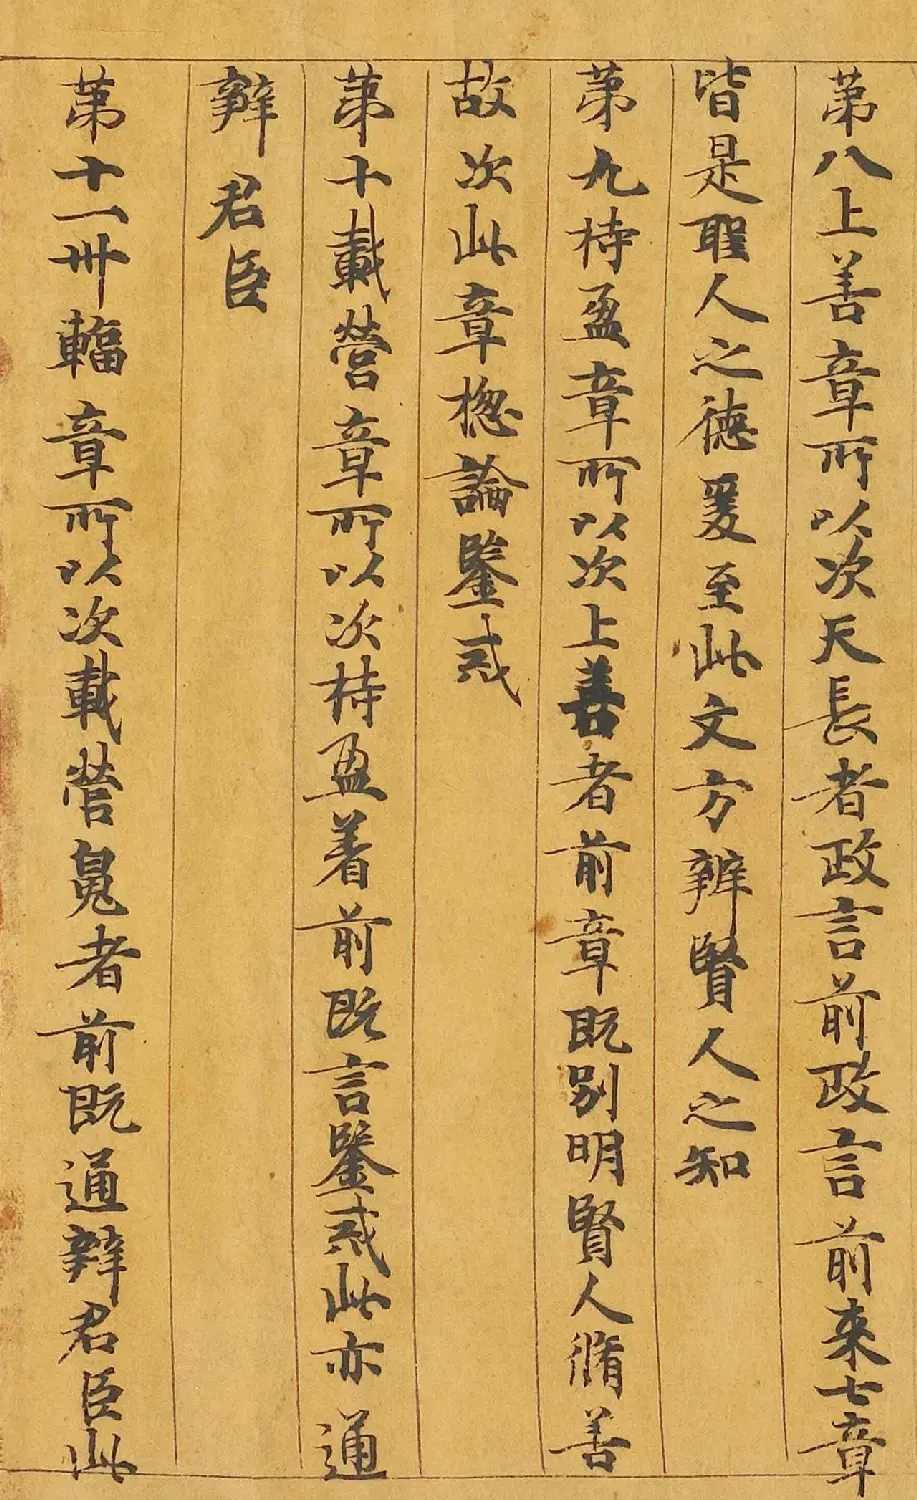 第八上善章所以次天長者政言前政言前来七章
皆是聖人之德爰至此文方辨賢人之知
第九持盈章所以次上善者前章既別明賢人脩善
故次此章揔論鑒戒
第十載營章所以次持盈者前既言鑒戒此亦通
辯君臣
第十一卅輻章所以次載營魄者前既通辯君臣此